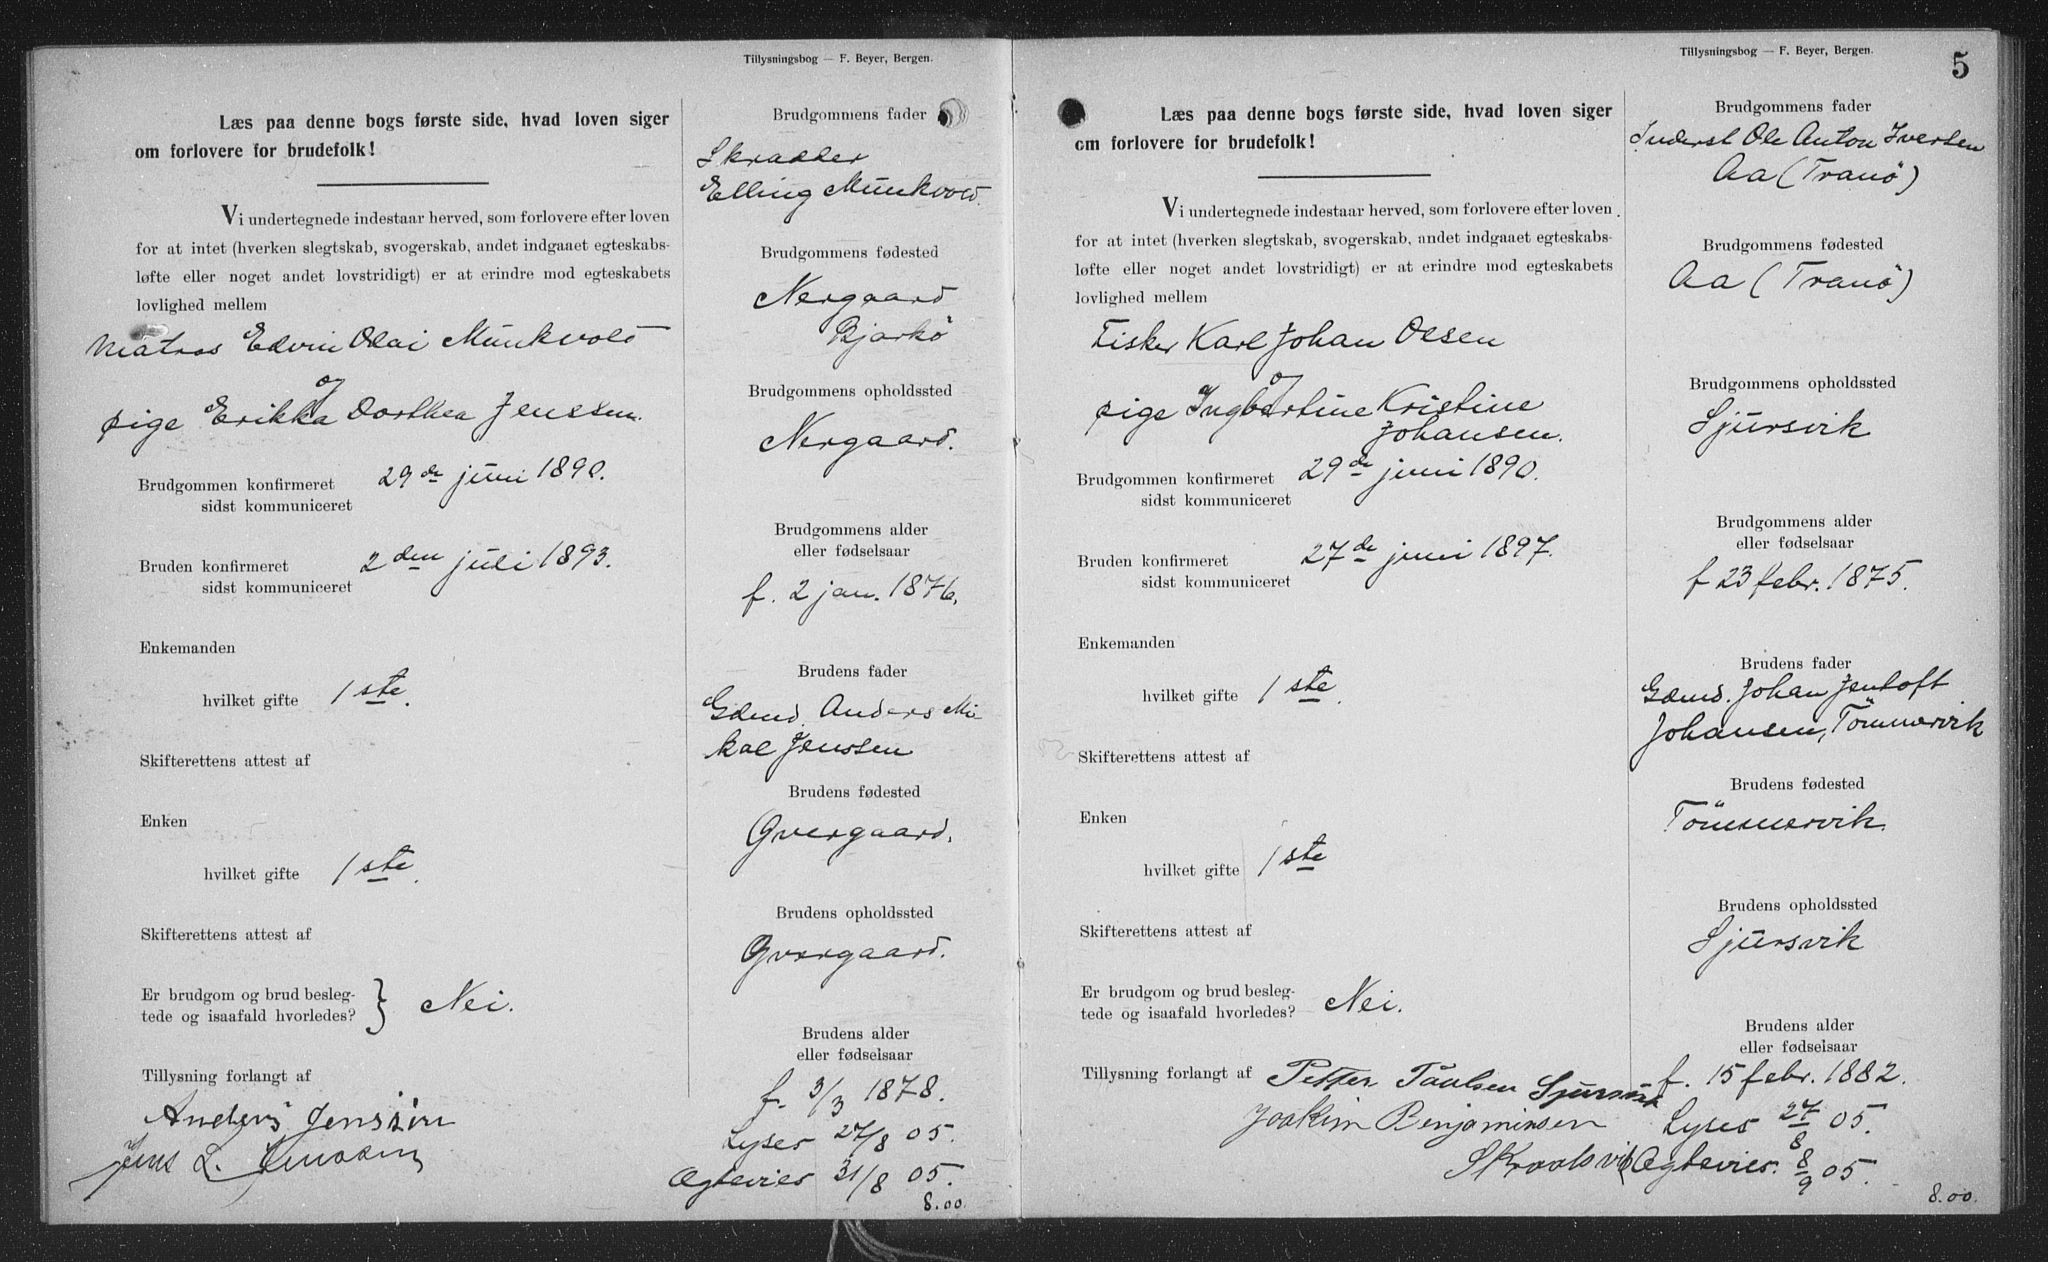 Tillysningsbog — F. Beyer, Bergen.
Læs paa denne bogs første side, hvad loven siger
om forlovere for brudefolk!
Vi undertegnede indestaar herved, som forlovere efter loven
for at intet (hverken slegtskab, svogerskab, andet indgaaet egteskabs-
løfte eller noget andet lovstridigt) er at erindre mod egteskabets
lovlighed mellem
Matros Edvin Olai Munkvold
og
pige Erikka Dorthea Jenssen.
Brudgommen konfirmeret 29de juni 1890.
sidst kommuniceret
Bruden konfirmeret 2den juli 1893.
sidst kommuniceret
Enkemanden
hvilket gifte 1ste.
Skifterettens attest af
Enken
hvilket gifte 1ste.
Skifterettens attest af
Er brudgom og brud besleg-
tede og isaafald hvorledes? } Nei.
Tillysning forlangt af
Anders Jenssen
Jens L. Jenssen
Brudgommens fader
Skrædder
Elling Munkvold.
Brudgommens fødested
Nergaard
Bjarkö
Brudgommens opholdssted
Nergaard.
Brudgommens alder
eller fødselsaar
f. 2 jan. 1876.
Brudens fader
Gdmd. Anders Mi
kal Jenssen
Brudens fødested
Qvergaard.
Brudens opholdssted
Qvergaard.
Brudens alder
eller fødselsaar
f. 3/3 1878.
Lyses 27/8 05.
Ægtevies 31/8 05.
8.00.
Tillysningsbog — F. Beyer, Bergen.
5
Læs paa denne bogs første side, hvad loven siger
om forlovere for brudefolk!
Vi undertegnede indestaar herved, som forlovere efter loven
for at intet (hverken slegtskab, svogerskab, andet indgaaet egteskabs-
løfte eller noget andet lovstridigt) er at erindre mod egteskabets
lovlighed mellem
Fisker Karl Johan Olsen
og
pige Ingbertine Kristine
Johansen.
Brudgommen konfirmeret 29de juni 1890.
sidst kommuniceret
Bruden konfirmeret 27de juni 1897.
sidst kommuniceret
Enkemanden
hvilket gifte 1ste.
Skifterettens attest af
Enken
hvilket gifte 1ste
Skifterettens attest af
Er brudgom og brud besleg-
tede og isaafald hvorledes? Nei.
Tillysning forlangt af Petter Paulsen Sjursvik
Joakim Benjaminsen
Skrolsvik
Brudgommens fader
Inderst Ole Anton Iversen
Aa (Tranö)
Brudgommens fødested
Aa (Tranö)
Brudgommens opholdssted
Sjursvik
Brudgommens alder
eller fødselsaar
f 23 febr. 1875.
Brudens fader
Gdmd. Johan Jentoft
Johansen, Tömmervik
Brudens fødested
Tömmervik.
Brudens opholdssted
Sjursvik
Brudens alder
eller fødselsaar
f. 15 febr. 1882.
Lyses 27/8 05.
Ægtevies. 8/9 05.
8.00.